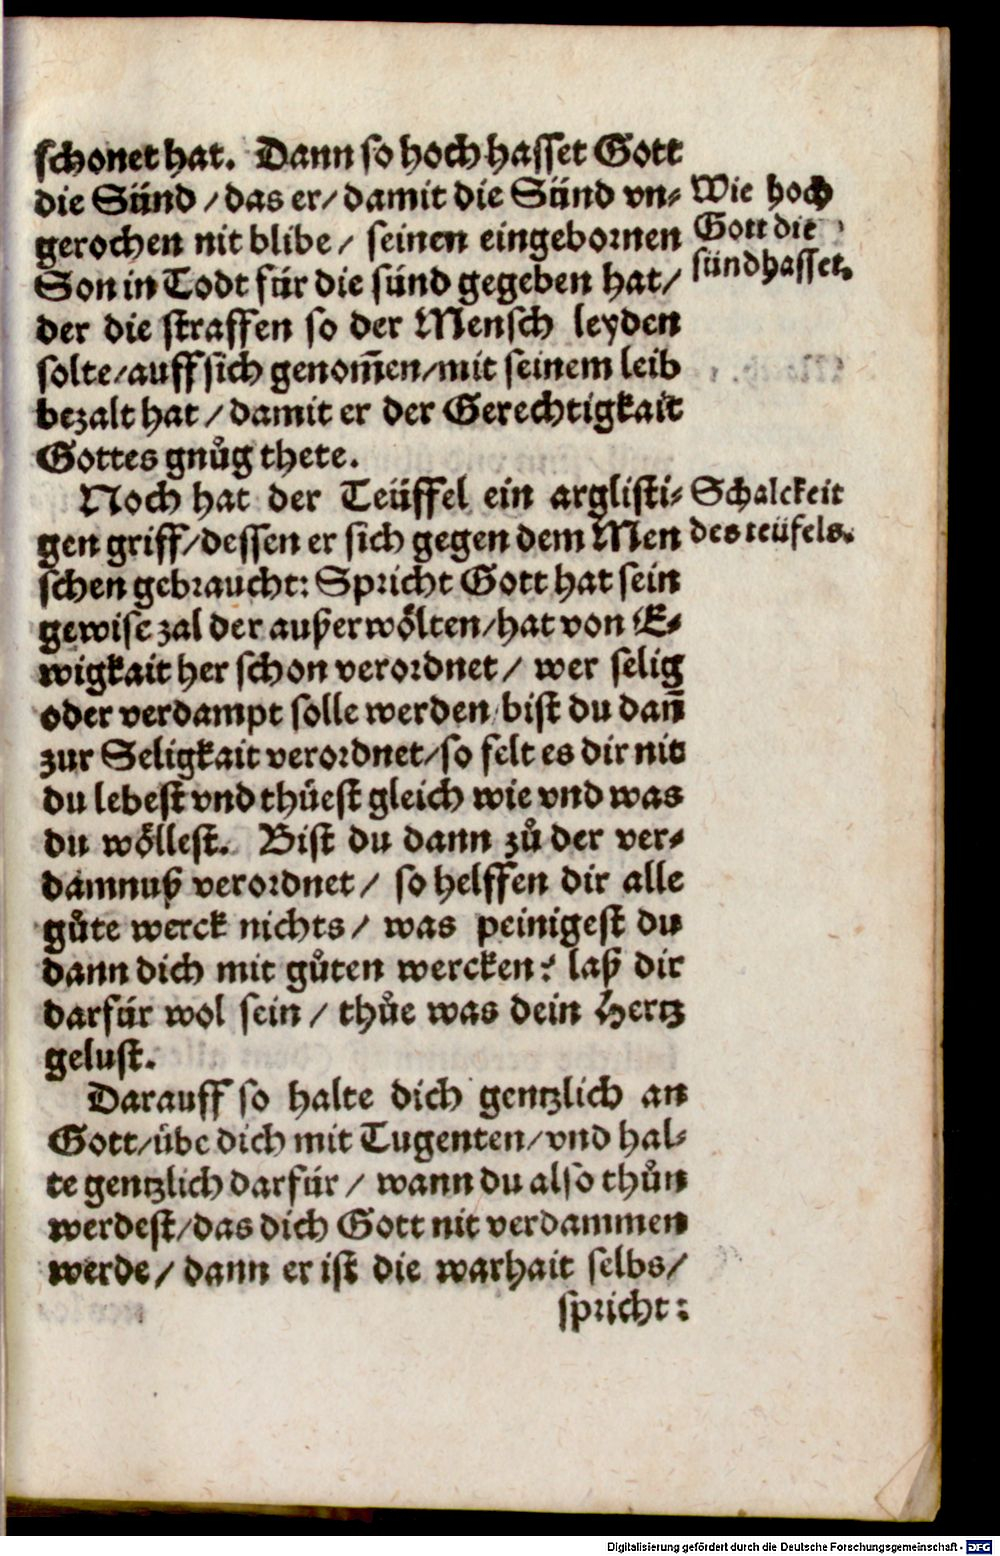 schonet hat. Dann so hoch hasset Gott
die Sünd / das er / damit die Sünd vn⸗
gerochen nit blibe / seinen eingebornen
Son in Todt für die sünd gegeben hat /
der die straffen so der Mensch leyden
solte / auff sich genom̄en / mit seinem leib
bezalt hat / damit er der Gerechtigkait
Gottes gnůg thete.
Wie hoch
Gott die
sünd hasset.
Noch hat der Teüffel ein arglisti⸗
gen griff / dessen er sich gegen dem Men
schen gebraucht: Spricht Gott hat sein
gewise zal der außerwoͤlten / hat von E⸗
wigkait her schon verordnet / wer selig
oder verdampt solle werden / bist du dañ
zur Seligkait verordnet / so felt es dir nit
du lebest vnd thüest gleich wie vnd was
du woͤllest. Bist du dann zů der ver⸗
damnuß verordnet / so helffen dir alle
gůte werck nichts / was peinigest du
dann dich mit gůten wercken? laß dir
darfür wol sein / thůe was dein Hertz
gelust.
Schalckeit
des teüfels.
Darauff so halte dich gentzlich an
Gott / übe dich mit Tugenten / vnd hal⸗
te gentzlich darfür / wann du also thůn
werdest / das dich Gott nit verdammen
werde / dann er ist die warhait selbs /
spricht:
Digitalisierung gefördert durch die Deutsche Forschungsgemeinschaft - DFG